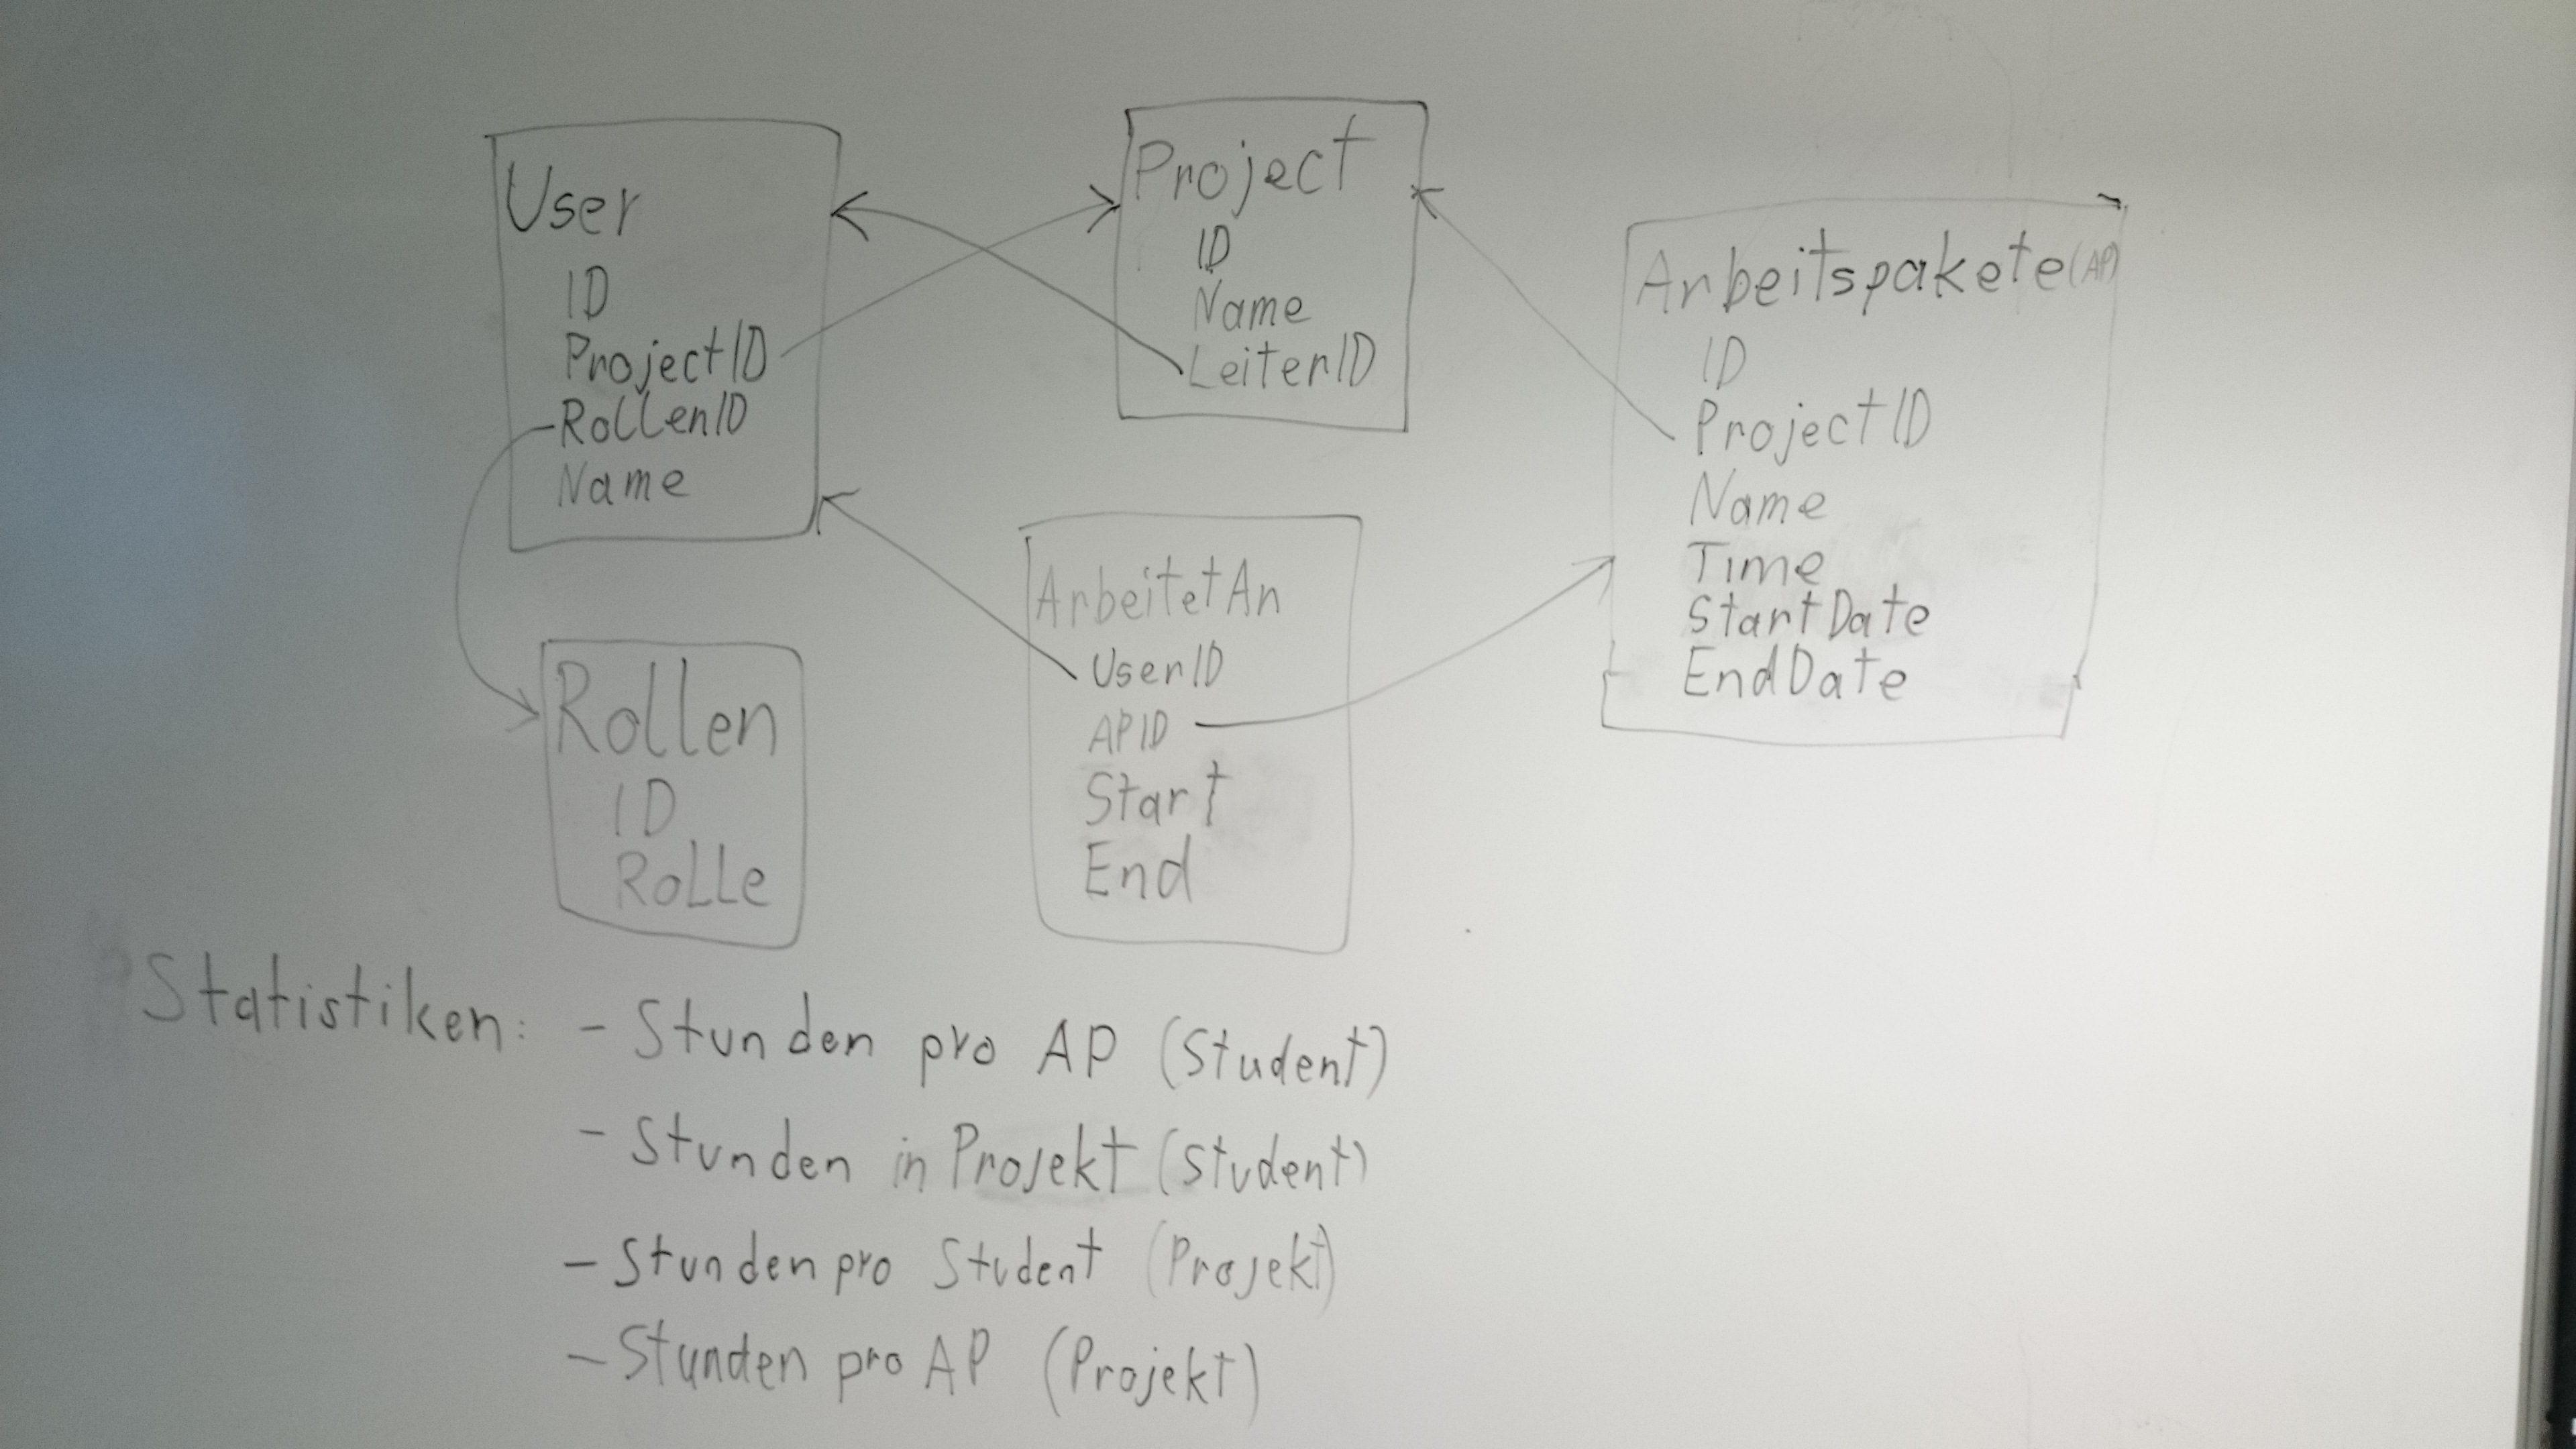 User
ID
ProjectID
RollenID
Name
Project
ID
Name
LeiterID
Arbeitspakete (AP)
ID
ProjectID
Name
Time
StartDate
EndDate
Rollen
ID
Rolle
ArbeitetAn
UserID
APID
Start
End
Statistiken: - Stunden pro AP (Student)
- Stunden in Projekt (Student)
- Stunden pro Student (Projekt)
- Stunden pro AP (Projekt)